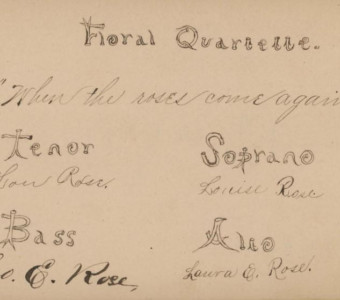 Floral Quartette.
"When the roses come again
Tenor
Soprano
Rose.
Louise Rose
Bass
Alto
E. Rose,
Laura E. Rose.